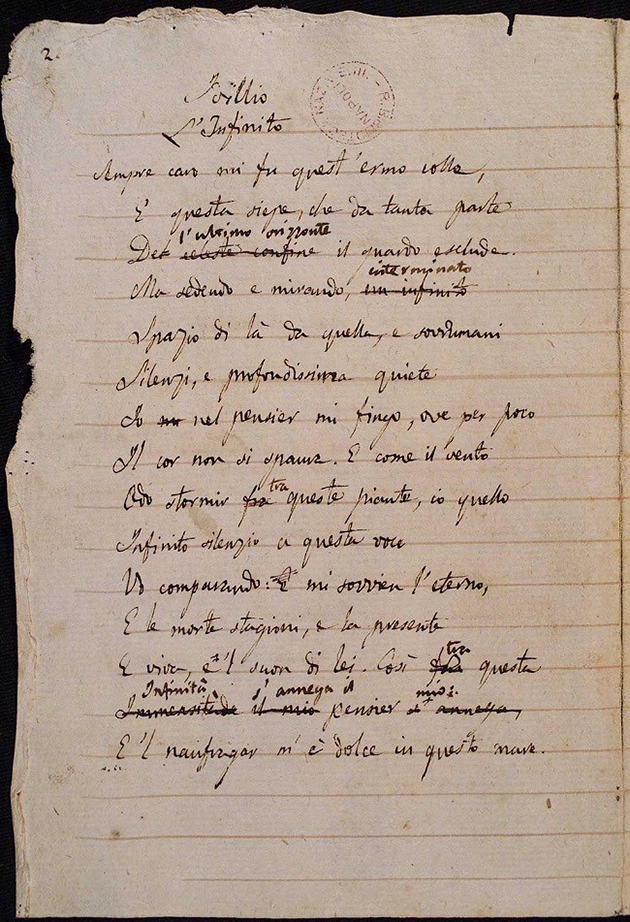 2.
Idillio
L'Infinito
Sempre caro mi fu quest'ermo colle,
E questa siepe, che da tanta parte
l'ultimo orizonte
Del celeste confine il guardo esclude.
interminato
Ma sedendo e mirando, un infinito
Spazio di là da quella, e sovrumani
Silenzi, e profondissima quiete
Io nel pensier mi fingo, ove per poco
Il cor non si spaura. E come il vento
tra
Odo stormir fra queste piante, io quello
Infinito silenzio a questa voce
Vo comparando: E mi sovvien l'eterno,
E le morte stagioni, e la presente
tra
E viva, e 'l suon di lei. Così fra questa
Infinità s'annega il mio:
Immensitade il mio pensier s'annega,
E 'l naufragar m'è dolce in questo mare.